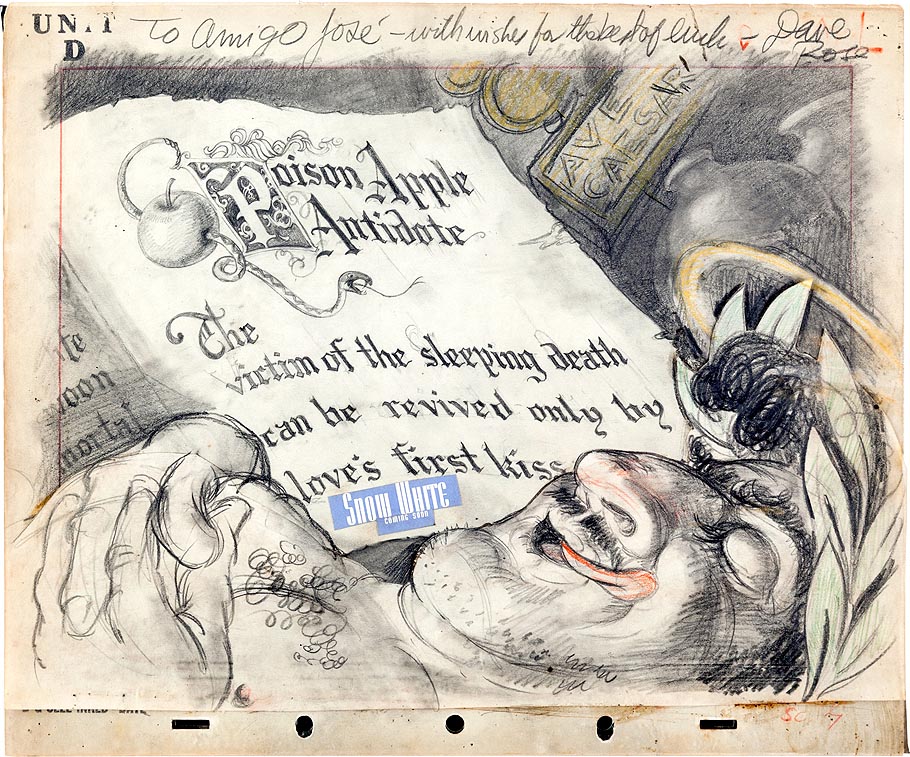 UNIT
D
To Amigo José – with wishes for the best of luck – Dave
Rose
AVE
CAESAR!
Poison Apple
Antidote
The
victim of the sleeping death
can be revived only by
love's first kiss
Snow White
COMING SOON
moon
mortal